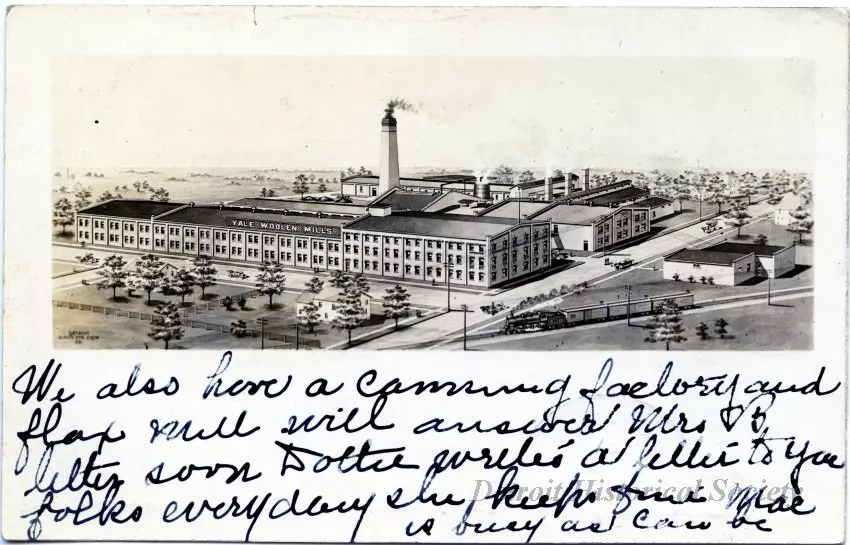 YALE WOOLEN MILLS
DETROIT
BIRD'S EYE VIEW
CO.
We also have a canning factory and
flax mill will answer Mrs B,
letter soon Dottie writes a letter to you
folks everyday she keeps fine Mae
is busy as can be
Detroit Historical Society